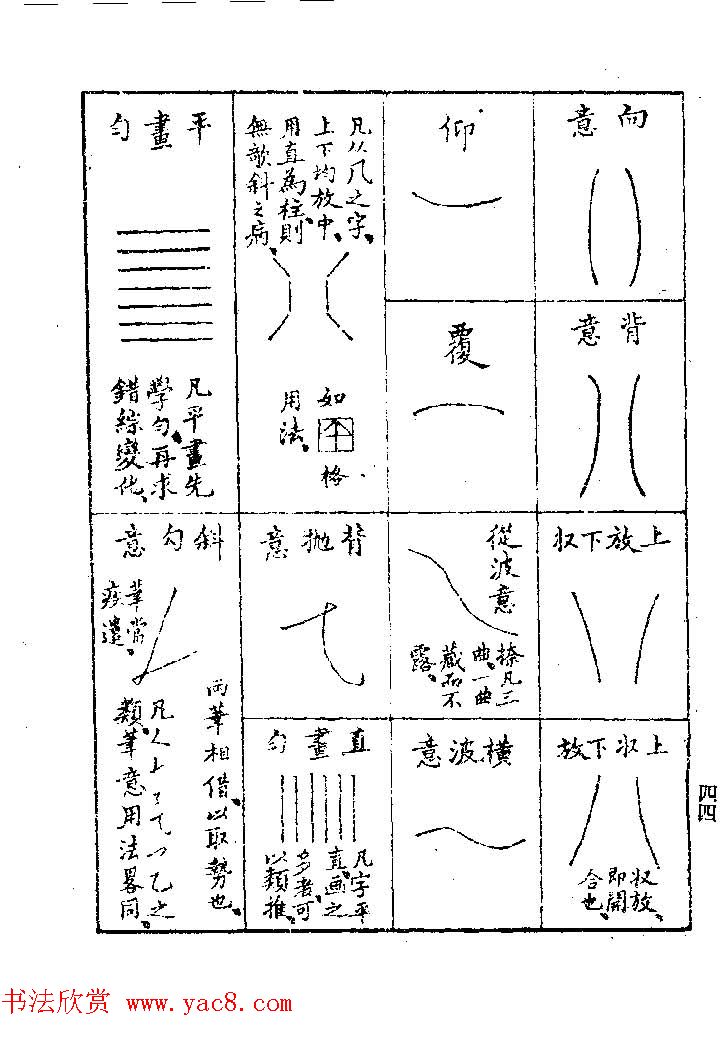 向意
背意
上放下収
上収下放
収放
即開
合也
仰
覆
從波意
捺凡三
曲一曲
藏而不
露
橫波意
凡从几之字
上下均放中
用直為柱則
無欹斜之病
如
格
用法
背抛意
直畫勻
凡字平
直画之
多者可
以類推
平畫勻
凡平畫先
學勻再求
錯綜變化
斜勾意
筆常
疾遣
兩筆相借以取勢也
類筆意用法畧同
四四
书法欣赏 www.yac8.com